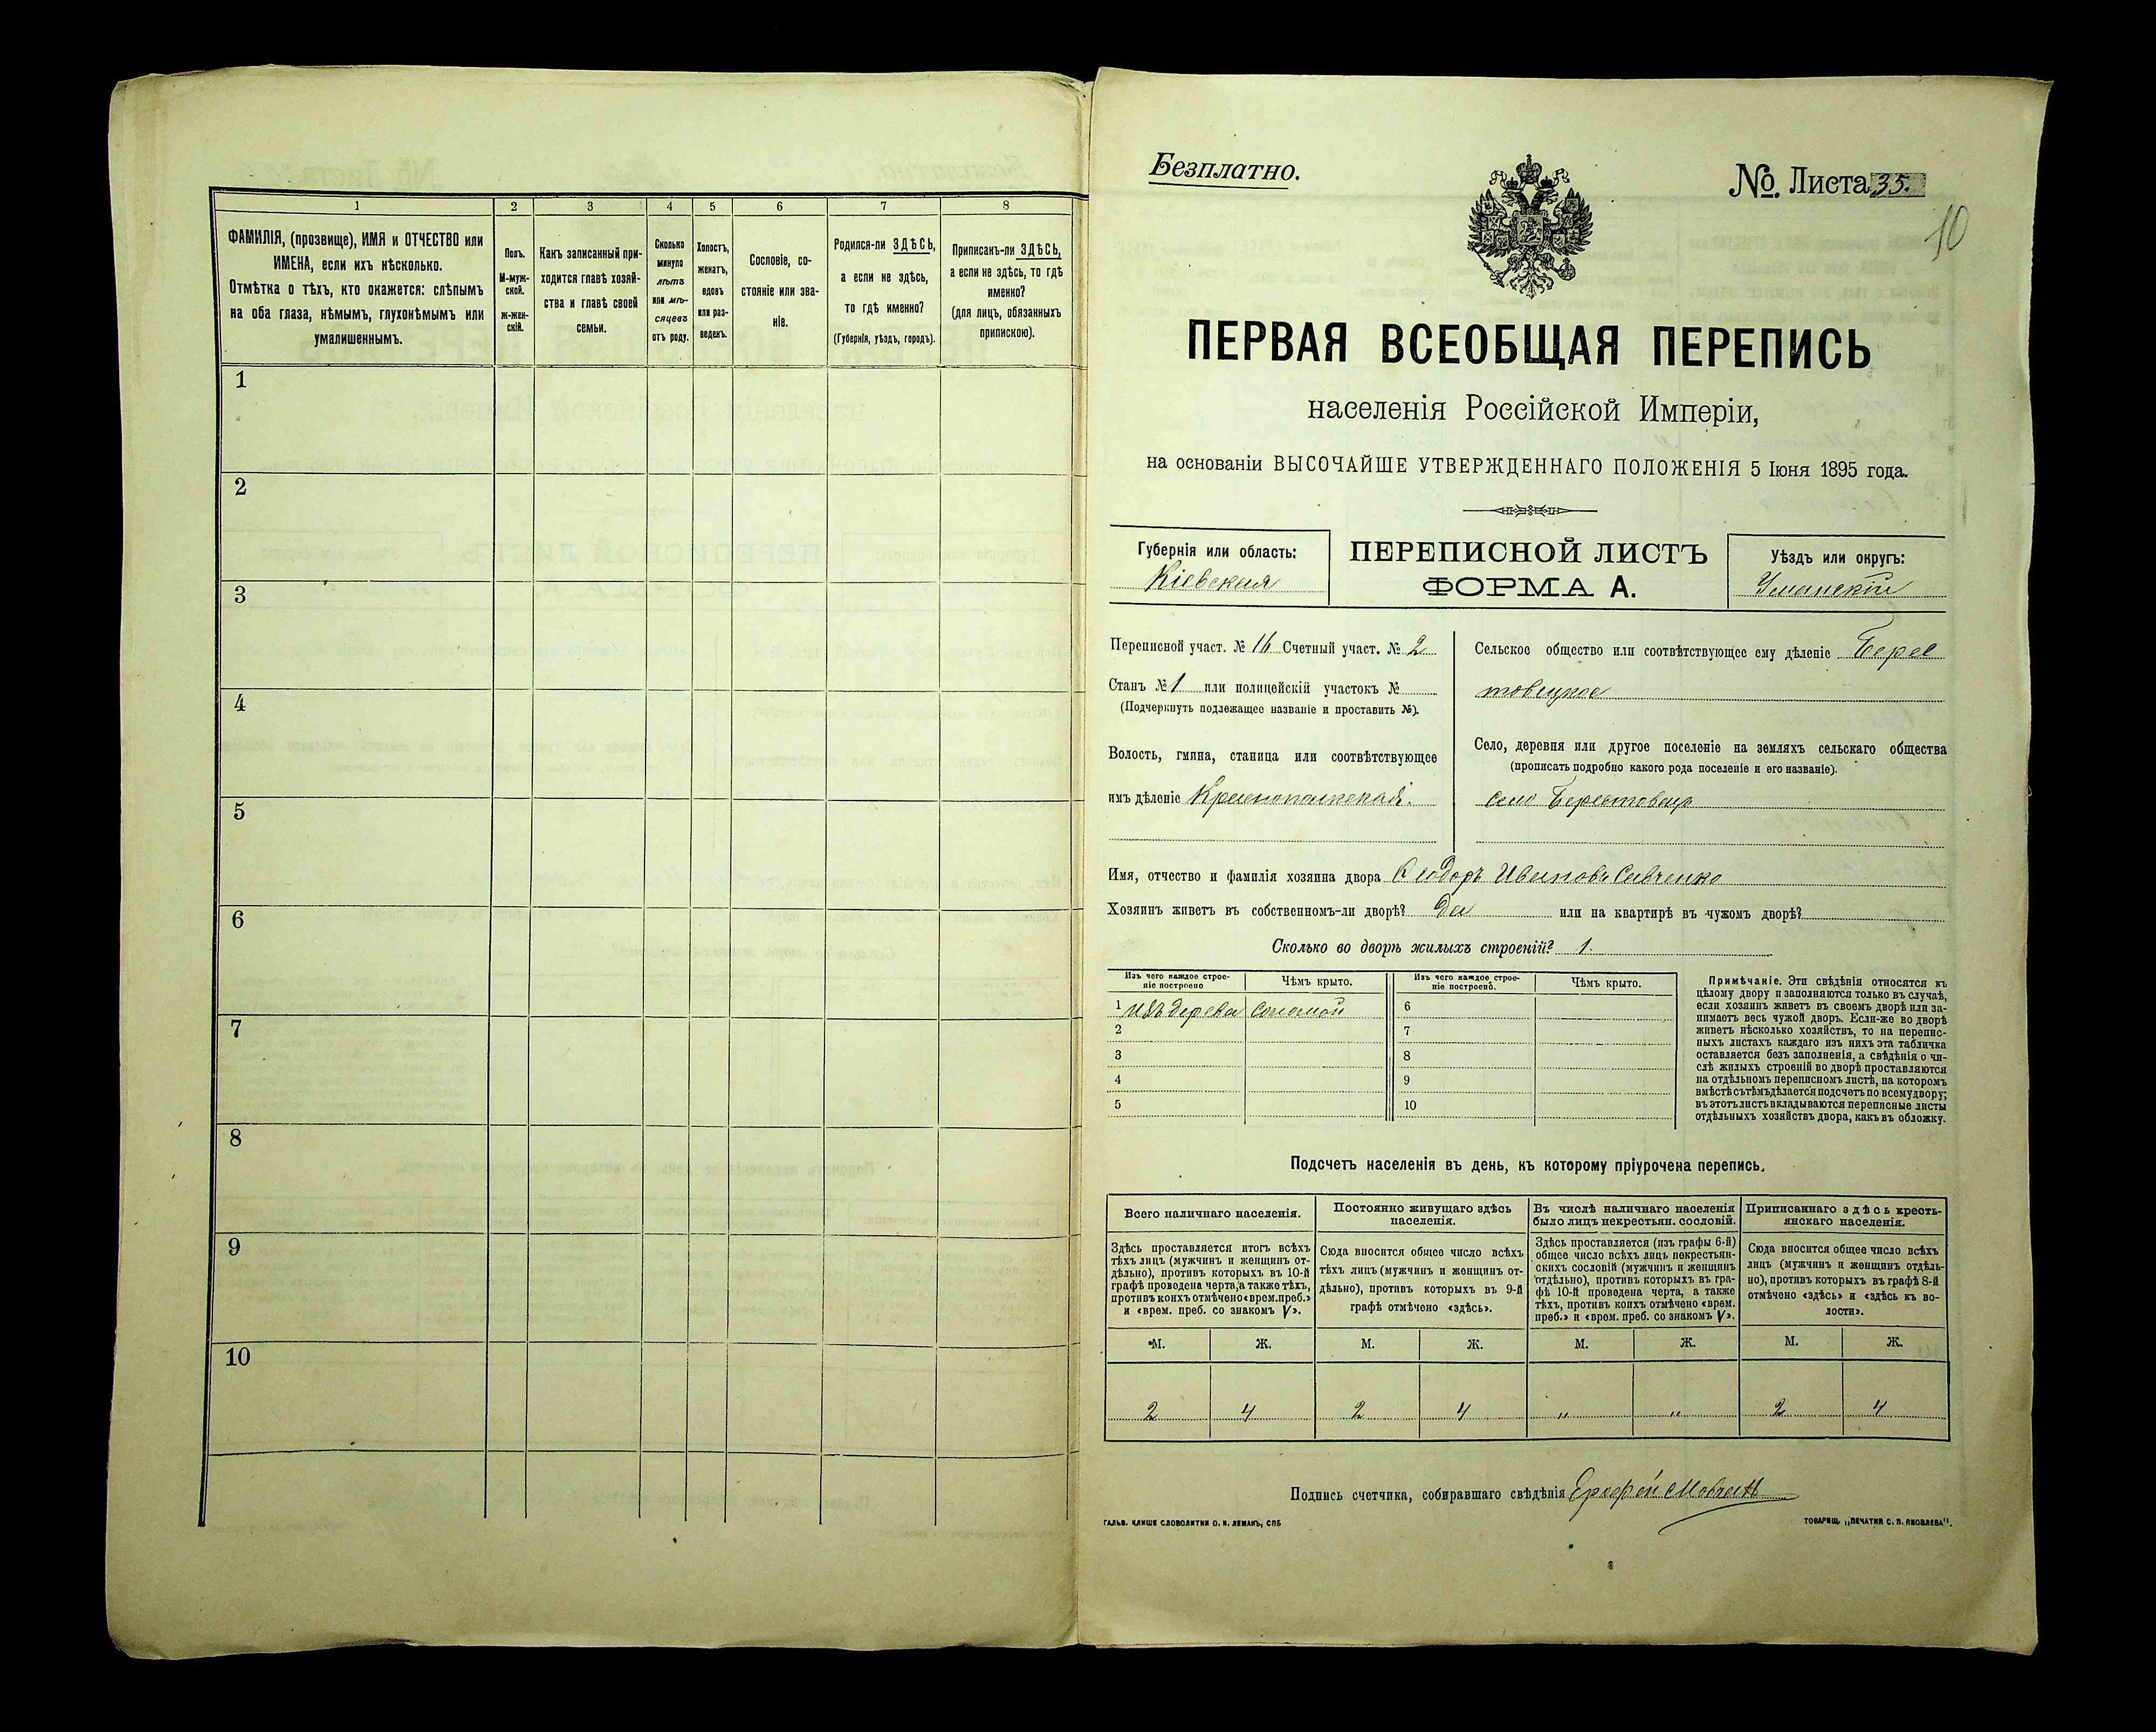 1 2 3 4 5 6 7 8
ФАМИЛІЯ, (прозвище), ИМЯ и ОТЧЕСТВО или
ИМЕНА, если ихъ нѣсколько.
Отмѣтка о тѣхъ, кто окажется: слѣпымъ
на оба глаза, нѣмымъ, глухонѣмымъ или
умалишеннымъ.
Полъ.
М-муж-
ской.
ж-жен-
скій.
Какъ записанный при-
ходится главѣ хозяй-
ства и главѣ своей
семьи.
Сколько
минуло
лѣтъ
или мѣ-
сяцевъ
отъ роду.
Холостъ,
женатъ,
вдовъ
или раз-
веденъ.
Сословіе, со-
стояніе или зва-
ніе.
Родился-ли ЗДѢСЬ,
а если не здѣсь,
то гдѣ именно?
(Губернія, уѣздъ, городъ).
Приписанъ-ли ЗДѢСЬ,
а если не здѣсь, то гдѣ
именно?
(для лицъ, обязанныхъ
припискою).
1
2
3
4
5
6
7
8
9
10
Безплатно.
№ Листа 35.
10
ПЕРВАЯ ВСЕОБЩАЯ ПЕРЕПИСЬ
населенія Россійской Имперіи,
на основаніи ВЫСОЧАЙШЕ УТВЕРЖДЕННАГО ПОЛОЖЕНІЯ 5 Іюня 1895 года.
Губернія или область:
Кіевская
ПЕРЕПИСНОЙ ЛИСТЪ
ФОРМА А.
Уѣздъ или округъ:
Уманскій
Переписной участ. № 16 Счетный участ. № 2
Станъ № 1 или полицейскій участокъ №
(Подчеркнуть подлежащее названіе и проставить №).
Волость, гмина, станица или соотвѣтствующее
имъ дѣленіе Краснопольская.
Сельское общество или соотвѣтствующее ему дѣленіе Берес
товецкое
Село, деревня или другое поселеніе на земляхъ сельскаго общества
(прописать подробно какого рода поселеніе и его названіе).
село Берестовецъ
Имя, отчество и фамилія хозяина двора Ѳеодоръ Ивановъ Савченко
Хозяинъ живетъ въ собственномъ-ли дворѣ? Да или на квартирѣ въ чужомъ дворѣ?
Сколько во дворѣ жилыхъ строеній? 1.
Изъ чего каждое строе-
ніе построено
Чѣмъ крыто.
Изъ чего каждое строе-
ніе построено.
Чѣмъ крыто.
1 Изъ дерева соломой 6
2 7
3 8
4 9
5 10
Примѣчаніе. Эти свѣдѣнія относятся къ
цѣлому двору и заполняются только въ случаѣ,
если хозяинъ живетъ въ своемъ дворѣ или за-
нимаетъ весь чужой дворъ. Если-же во дворѣ
живетъ нѣсколько хозяйствъ, то на перепис-
ныхъ листахъ каждаго изъ нихъ эта табличка
оставляется безъ заполненія, а свѣдѣнія о чи-
слѣ жилыхъ строеній во дворѣ проставляются
на отдѣльномъ переписномъ листѣ, на которомъ
вмѣстѣ съ тѣмъ дѣлается подсчетъ по всему двору;
въ этотъ листъ вкладываются переписные листы
отдѣльныхъ хозяйствъ двора, какъ въ обложку.
Подсчетъ населенія въ день, къ которому пріурочена перепись.
Всего наличнаго населенія.
Здѣсь проставляется итогъ всѣхъ
тѣхъ лицъ (мужчинъ и женщинъ от-
дѣльно), противъ которыхъ въ 10-й
графѣ проведена черта, а также тѣхъ,
противъ коихъ отмѣчено «врем. преб.»
и «врем. преб. со знакомъ V».
Постоянно живущаго здѣсь
населенія.
Сюда вносится общее число всѣхъ
тѣхъ лицъ (мужчинъ и женщинъ от-
дѣльно), противъ которыхъ въ 9-й
графѣ отмѣчено «здѣсь».
Въ числѣ наличнаго населенія
было лицъ некрестьян. сословій.
Здѣсь проставляется (изъ графы 6-й)
общее число всѣхъ лицъ некрестьян-
скихъ сословій (мужчинъ и женщинъ
отдѣльно), противъ которыхъ въ гра-
фѣ 10-й проведена черта, а также
тѣхъ, противъ коихъ отмѣчено «врем.
преб.» и «врем. преб. со знакомъ V».
Приписаннаго здѣсь кресть-
янскаго населенія.
Сюда вносится общее число всѣхъ
лицъ (мужчинъ и женщинъ отдѣль-
но), противъ которыхъ въ графѣ 8-й
отмѣчено «здѣсь» и «здѣсь къ во-
лости».
М. Ж. М. Ж. М. Ж. М. Ж.
2 4 2 4 " " 2 4
Подпись счетчика, собиравшаго свѣдѣнія Ерофей Мовчанъ
ГАЛЬВ. КЛИШЕ СЛОВОЛИТНИ О. И. ЛЕМАНЪ, СПБ
ТОВАРИЩ. „ПЕЧАТНЯ С. П. ЯКОВЛЕВА".